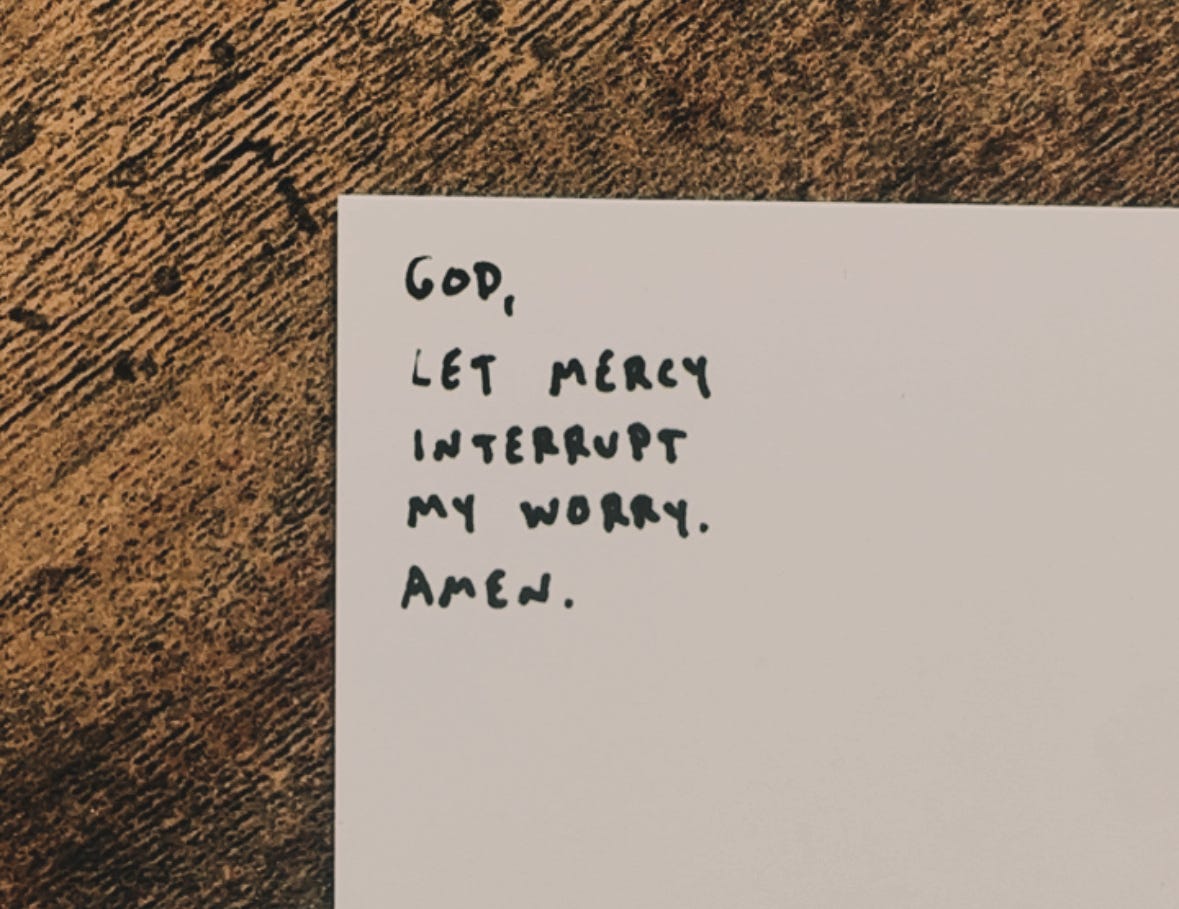 GOD,
LET MERCY
INTERRUPT
MY WORRY.
AMEN.